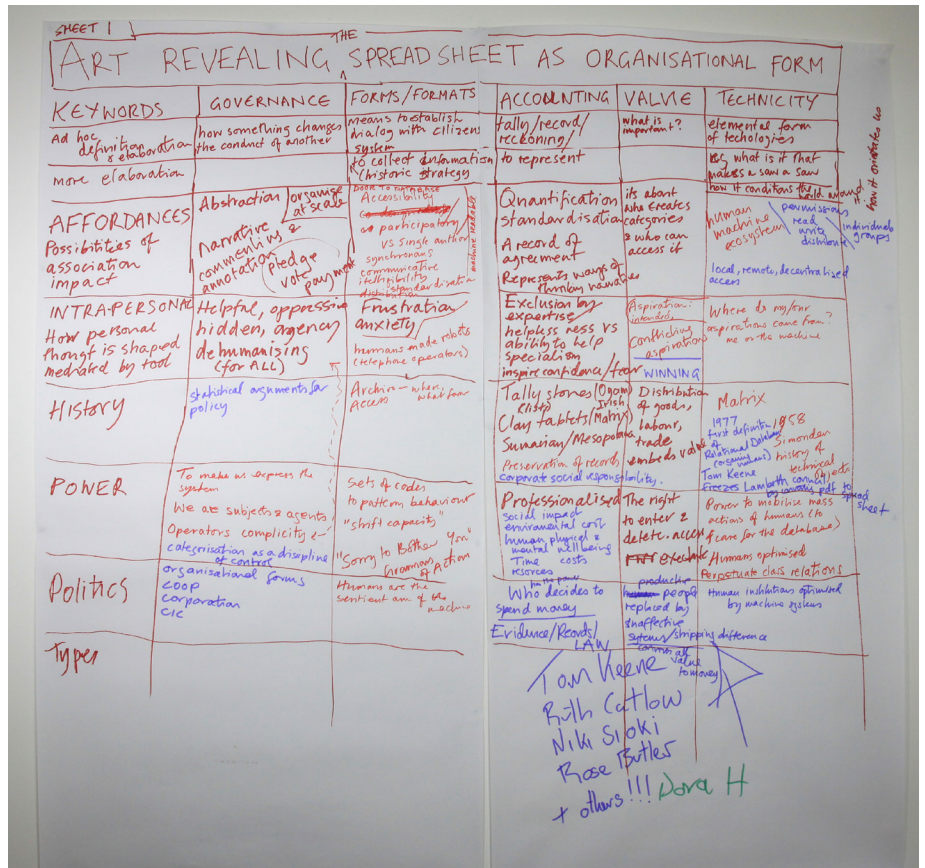 SHEET 1
THE
ART REVEALING SPREADSHEET AS ORGANISATIONAL FORM
KEYWORDS
GOVERNANCE
FORMS/FORMATS
ACCOUNTING
VALUE
TECHNICITY
Ad hoc
definition & elaboration
how something changes
the conduct of another
means to establish
dialog with citizens
system
tally/record/
reckoning/
what is
important?
elemental form
of techologies
more elaboration
to collect information
(historic strategy
to represent
what is it that
makes a saw a saw
how it conditions the world around
how it orientates us
AFFORDANCES
Possibilities of
association
impact
Abstraction
organise
at scale
narrative
commenting &
annotation
pledge
vote
payment
Accessibility
participatory/
vs single author
synchronous
communicative
intelligibility
standardisation
distribution
machine readable
Quantification
standardisation
A record of
agreement
Represents ways of
its about
who creates
categories
& who can
access it
human
machine
ecosystem
permissions
read
write
distribute
individuals
groups
local, remote, decentralised
access
INTRA-PERSONAL
How personal
thougt is shaped
mediated by tool
Helpful, oppressive
hidden, agency
dehumanising
(for ALL)
Frustration
anxiety
humans made robots
(telephone operators)
Exclusion by
expertise
helplessness vs
ability to help
specialism
inspire confidence/fear
Aspiration:
intended,
Conflicting
aspirations
WINNING
Where do my/our
aspirations come from?
me or the machine
History
statistical arguments for
policy
Archive - when,
Access what for
Tally stones (Ogam
(lists) Irish)
Clay tablets (Matrix)
Sumarian/Mesopotamia
Preservation of records
corporate social responsibility.
Distribution
of goods,
labour,
trade
embeds value
Matrix
1977
first definition
Relational Database
Tom Keene
1958
Simondon
history of
technical
objects
Lambeth council
pdf to
spread
sheet
POWER
To make us express the
system
We are subjects & agents
Operators complicity
categorisation as a discipline
of control
Sets of codes
to pattern behaviour
"shift capacity"
"Sorry to Bother You"
Grammars of Action
Professionalised
Social impact
enviramental cost
human physical &
mental wellbeing
Time costs
resorces
The right
to enter &
delete. access
executable
Power to mobilise mass
actions of humans (to
care for the database)
Humans optimised
Perpetuate class relations
Politics
organisational forms
COOP
Corporation
CIC
Humans are the
sentient arm of the
machine
Who decides to
spend money
Evidence/Records/
LAW
productive
people
replaced by
inaffective
systems/stripping difference
value
to money
Human institutions optimised
by machine systems
Types
Tom Keene
Ruth Catlow
Niki Sioki
Rose Butler
+ others!!!
Dora H